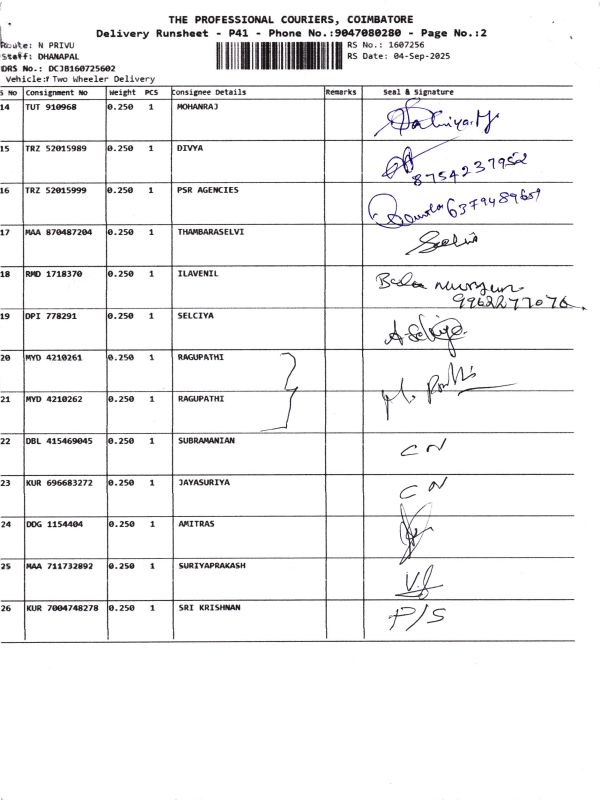 THE PROFESSIONAL COURIERS, COIMBATORE
Delivery Runsheet - P41 - Phone No.:9047080280 - Page No.:2
Route: N PRIVU
RS No.: 1607256
Staff: DHANAPAL
RS Date: 04-Sep-2025
DRS No.: DCJB160725602
Vehicle:# Two Wheeler Delivery
S No Consignment No Weight PCS Consignee Details Remarks Seal & Signature
14 TUT 910968 0.250 1 MOHANRAJ
15 TRZ 52015989 0.250 1 DIVYA
8754237952
16 TRZ 52015999 0.250 1 PSR AGENCIES 6379489659
17 MAA 870487204 0.250 1 THAMBARASELVI
18 RMD 1718370 0.250 1 ILAVENIL
9962277076
19 DPI 778291 0.250 1 SELCIYA A. Selciya
20 MYD 4210261 0.250 1 RAGUPATHI
21 MYD 4210262 0.250 1 RAGUPATHI
22 DBL 415469045 0.250 1 SUBRAMANIAN CN
23 KUR 696683272 0.250 1 JAYASURIYA CN
24 DDG 1154404 0.250 1 AMITRAS
25 MAA 711732892 0.250 1 SURIYAPRAKASH
26 KUR 7004748278 0.250 1 SRI KRISHNAN P/S